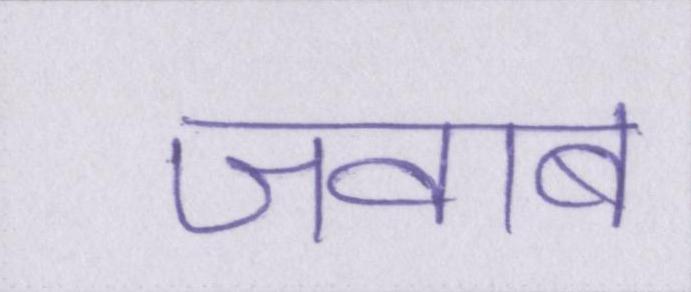 जवाब